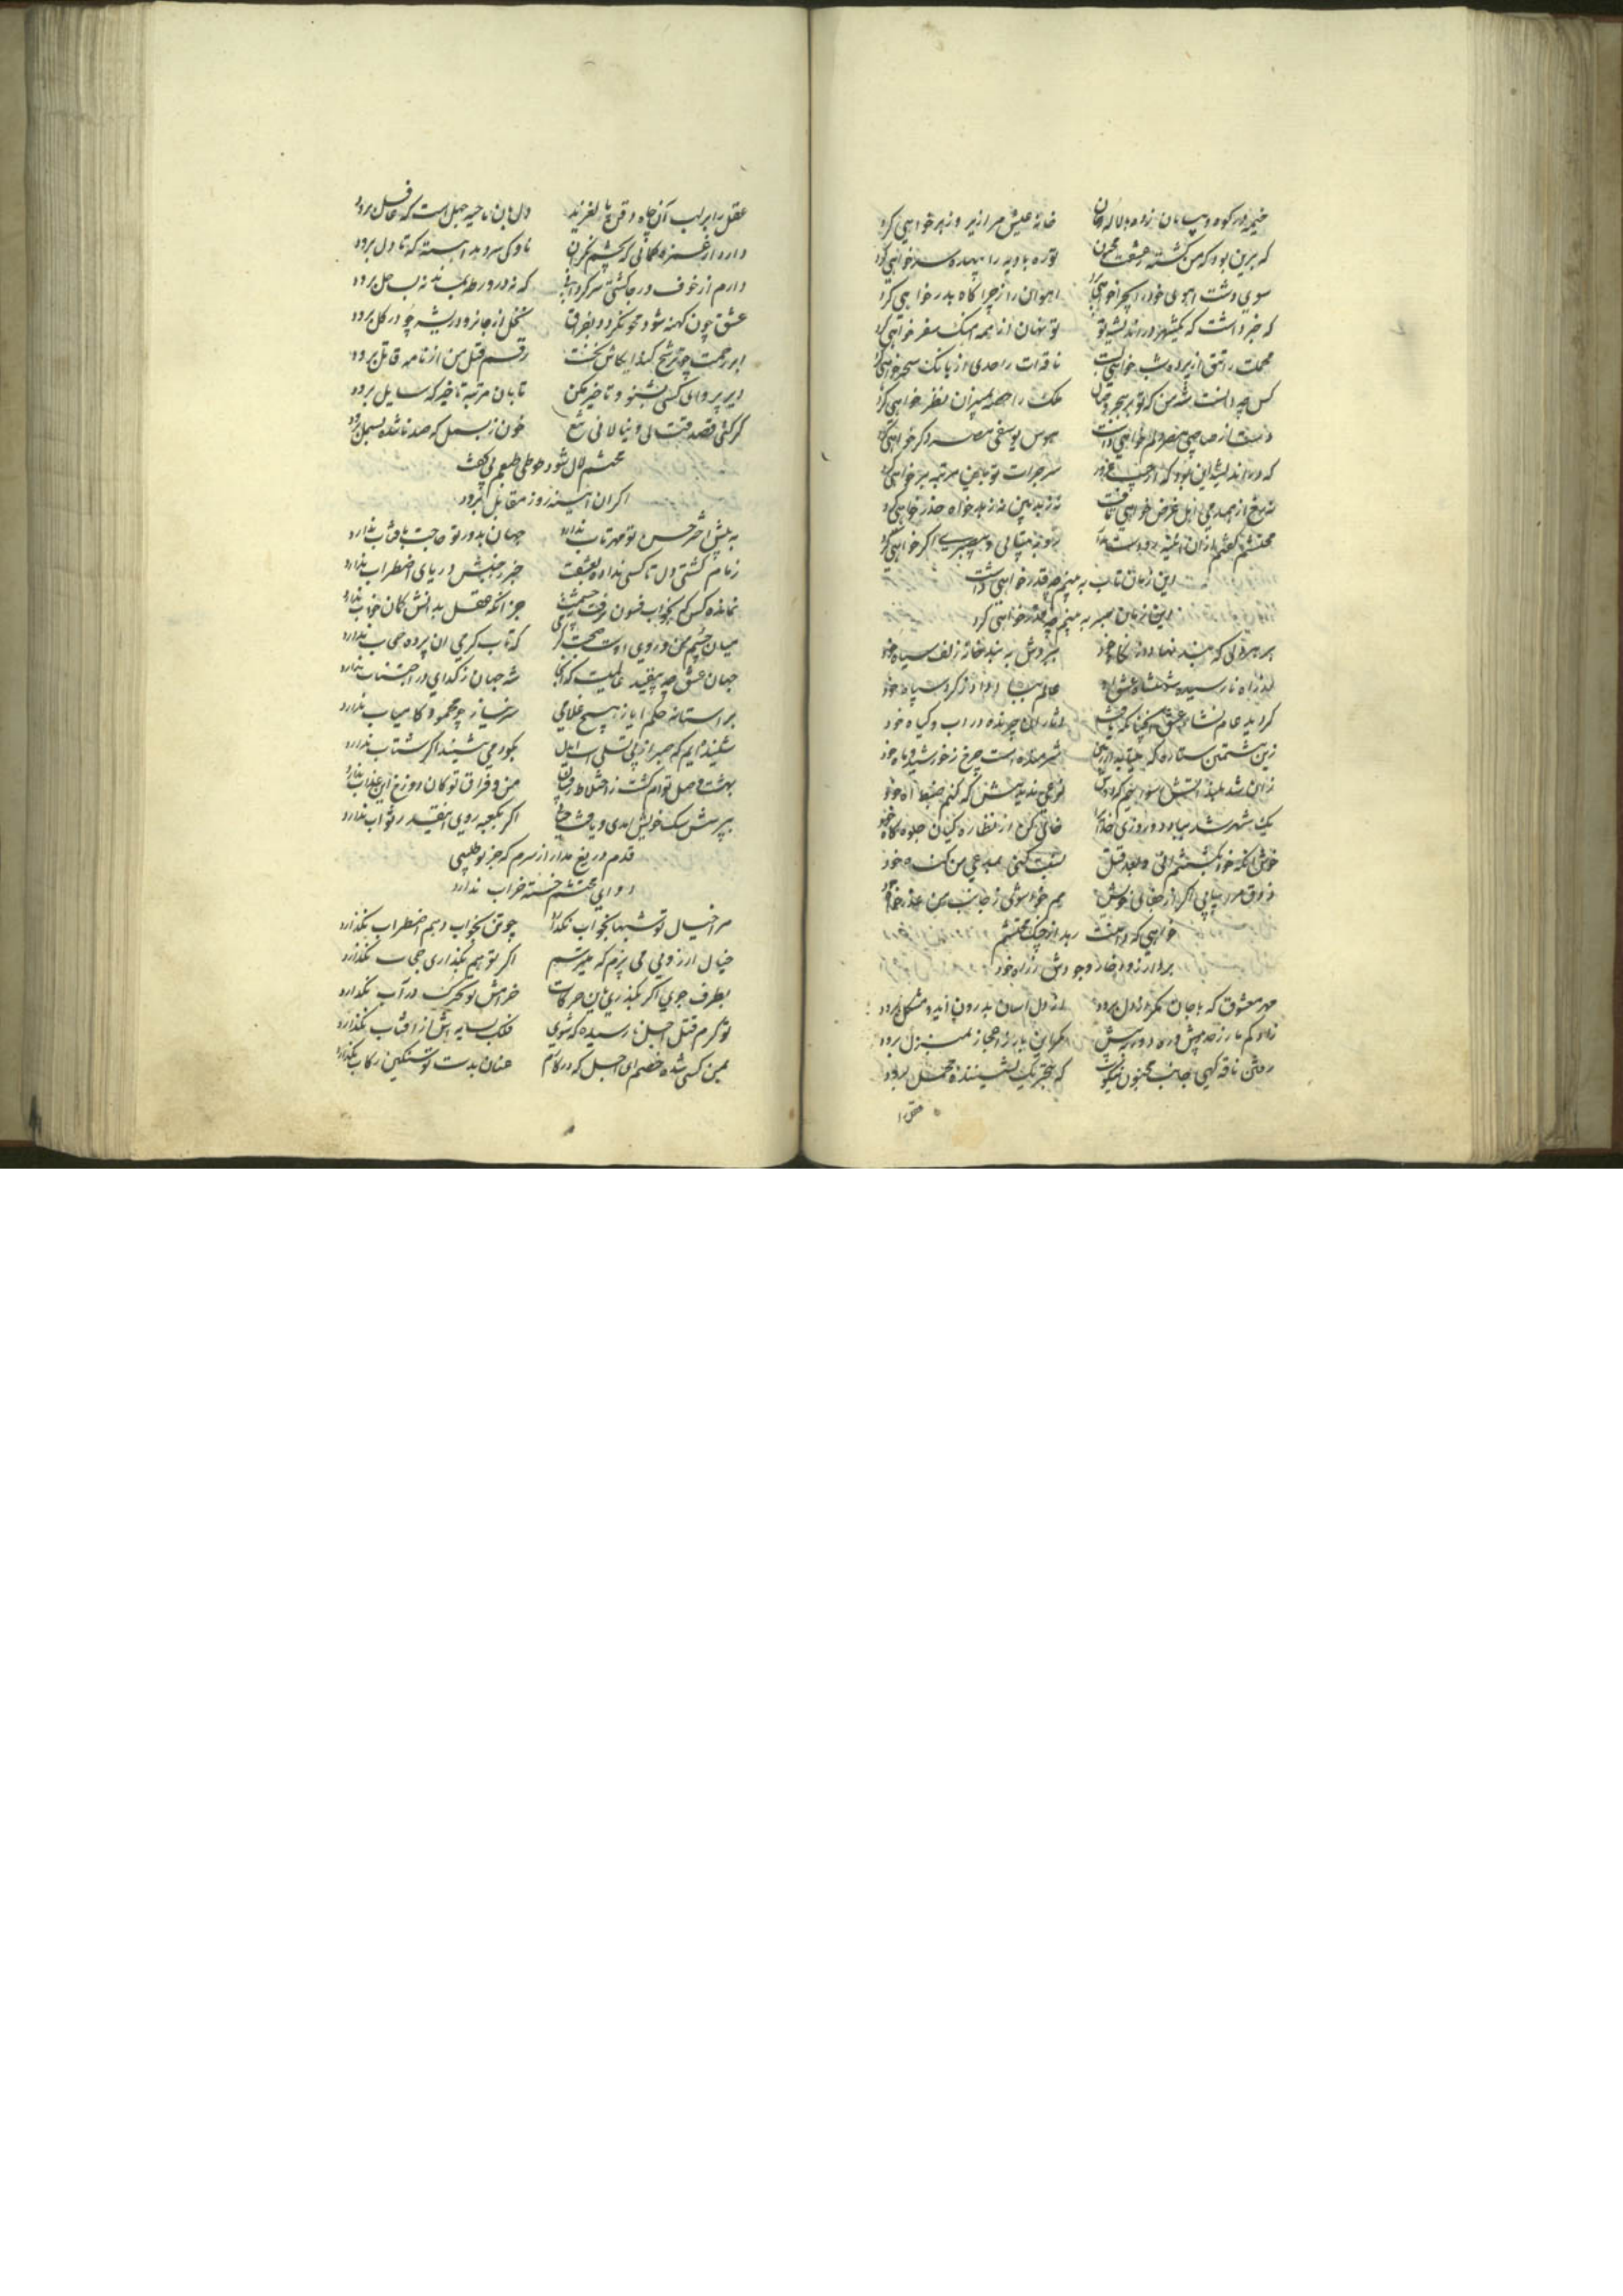 خیمه در کوه و بیابان زده با لاله رخان خانهٔ عیش مرا زیر و زبر خواهی کرد
که برین بود که من کشته عشقت محزون تو ره بادیه را پیاده سر خواهی کرد
سوی دشت آهوی خود را بچرا خواهی برد آهوان را ز چراگاه بدر خواهی کرد
که خبر داشت که یکشهر در اندیشهٔ تو تو نهان از همه آهنگ سفر خواهی کرد
محملت را تتق از پرده شب خواهی بست ناقه‌ات را حدی از بانک سحر خواهی کرد
کس چه دانست شه من که تو بر هجر و وصال ملک را هم بمیزان نظر خواهی کرد
دست از صاحبی مصر دلم خواهی داشت هوس یوسفی مصر دگر خواهی کرد
که در اندیشهٔ این بود که از جیب غرور سر جرات تو باین مرتبه بر خواهی کرد
نه رخ از همدمی اهل غرض خواهی تافت نه ز بدبین نه ز بدخواه حذر خواهی کرد
محتشم گفتم ازان آینه رو دست مدار تو به بیتابی و بیصبری اگر خواهی کرد
این زمان تاب به بینم چه قدر خواهی داشت
این زمان صبر به بینم چه قدر خواهی کرد
بر هر دلی که بند نهاد از نگاه خود بفروش به بند خانه زلف سیاه خود
لب ز راه نارسیده شهنشاه عشق او عالم بباد داد ز گرد سپاه خود
گردید عام نشاء عشق آنچنان که یافت آثار آن چرنده در آب و گیاه خود
زین شمتن ستاره که بیتابد از زمین شرمنده است چرخ ز خورشید و ماه خود
زان شد بلند آتش سوزنم که در دلت نوعی ندیدمش که کنم ضبط آه خود
یک شهر شد بباد دو روزی خدای را خالی کن از نظاره کنان جلوه گاه خود
خوش آنکه خود بخشم آئی و بعد قتل نسبت کنی بمدعی من گناه خود
ذوق مرد بیابی اگر از جفای خویش هم خود شوی ز جانب من عذرخواه خود
خواهی که دامنت رهد از چنگ محتشم
بردار زود خار وجودش ز راه خود
مهر معشوق که با جان مگر از دل برود از دل آسان بدرون آید و مشکل برود
زاد کم بار ز حد بیش و ره دور به پیش مگر این بار به اعجاز بمنزل برود
روش ناقه گهی جانب مجنون نیکوست که بتحریک نشیننده محمل برود
عقل را
عقل را بر لب آن چاه ذقن پا لغزید دل بآن ناحیه جهل است که غافل برود
دارد از غمزه کمانی که بچشم نگران ناوکی سر دهد آهسته که تا دل برود
دارم از خوف و رجا کشتی سرگردانی که نه در ورطه بماند نه بساحل برود
عشق چون کهنه شود محو نگردد بفراق نخل از جا نرود ریشه چو در گل برود
ابر رحمت چو ترشح کند ای کاش نخست رقم قتل من از نامه قاتل برود
دیر پروای کسی بشنو و تاخیر مکن تا بآن مرتبه تاخیر که سایل برود
گر کشی قصد قتالی و نیالائی تیغ خون ز بسمل که صد ناشده بسمل برود
محتشم لال شود طوطی طبعم بی گفت
اگر آن آینه رو ز مقابل برود
به پیش اختر حسن تو مهر تاب ندارد جهان بدور تو حاجت بآفتاب ندارد
زمام کشتی دل تا کسی نداده بعشقت خبر ز جنبش دریای اضطراب ندارد
نمانده کس که بخواب فسون نرفت ز چشمت جز آنکه عقل بدانش گمان خواب ندارد
میان چشم من و روی اوست صحبت گرمی که تاب گرمی آن پرده حجاب ندارد
جهان عشق چه بیقید عالمیست که آنجا شه جهان ز گدای در اجتناب ندارد
بر آستانه حکم ایاز هیچ غلامی سر نیاز چو محمود کامیاب ندارد
شنیده‌ایم که صبر از پی تسلی است ایدل بگو دمی بنشیند اگر شتاب ندارد
بهشت وصل توام کشت ز اختلاط رقیبان من و فراق تو کان دوزخ این عذاب ندارد
بپرسش سک خویش آمدی و یافت حیاتی اگر بکعبه روی اینقدر ثواب ندارد
قدم دریغ مدار از سرم که جز تو طبیبی
دوای محتشم خسته خراب ندارد
مرا خیال تو شبها بخواب نگذارد چو تن بخواب دهم اضطراب نگذارد
خیال آرزویی می پزم که میترسم اگر تو هم بگذاری حجاب نگذارد
بطرف جوی اگر بگذری باین حرکات خرامش تو تحرک در آب نگذارد
تو گرم قتل اجل نارسیده که شوی فلک بسایه‌اش از آفتاب نگذارد
بمن کسی شده خصم ای اجل که در کارم عنان بدست تو سنگین رکاب نگذارد